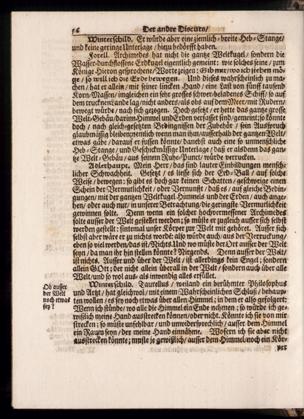 56 Der andre Discurs/
Winterschild. Er würde aber eine ziemlich-breite Heb-Stange/
und keine geringe Unterlage/ hiezu bedörfft haben.
Forell. Archimedes hat nicht die gantze Weltkugel/ sondern die
Wasser-durchflossene Erdkugel eigentlich gemeint: wie solches seine/ zum
Könige Hieron gesprochene/ Worte zeigen: Gib mir/ wo ich stehen mö-
ge/ so will ich die Erde bewegen. Und dieses wahrscheinlich zu ma-
chen/ hat er allein/ mit seiner lincken Hand/ ein Last von fünff tausend
Korn-Massen/ ingleichen ein sehr grosses schwebendes Schiff/ so auf
dem trucknen Lande lag/ nicht anders/ als ob es auf dem Meer/ mit Rudern
bewegt würde/ nach sich gezogen. Doch gesetzt/ er hette das gantze grosse
Welt-Gebäu/ darinn Himmel und Erden verfasst sind/ gemeint; so könnte
doch/ nach gesetzten Bedingnissen der Zubehör/ sein Ausspruch
glaubmässig bleiben: wenn man ihm/ ausserhalb der gantzen Welt/
etwas gäbe/ darauf er fussen könnte/ darzu auch eine so unmenschliche
Heb-Stange/ und Geschicksmässige Unterlage/ dass er alsdenn das gan-
tze Welt-Gebäu/ aus seinem Ruhe-Punct/ würde verrucken.
Adlerhaupt. Mein Herr/ das sind lauter Einbildungen menschli-
cher Schwachheit. Gesetzt/ es liesse sich der Erd-Ball/ auf solche
Weise/ bewegen: so gibt es doch gar keinen Schatten/ geschweige einen
Schein der Vermutlichkeit/ oder Vernunfft/ dass es/ auf gleiche Bedin-
gungen/ mit der gantzen Weltkugel/ Himmels und der Erden/ auch ange-
hen/ oder auch nur/ in unserer Betrachtung/ die geringste Vermutlichkeit
gewinnen sollte. Denn wenn ein solcher hochvermessener Archimedes
solte ausser der Welt gestellet werden; so müste er zugleich ausser sich selbst
werden gestellt: sintemal ausser Körper zur Welt mit gehöret. Ausser sich
selbst aber wäre er zu nichts worden: also würde auch/ aus der Verruckung/
den so viel werden/ das ist/ Nichts. Und wo müste der Ort ausser der Welt
seyn/ da man ihn hin stellen könnte? Nirgends. Denn ausser der Welt/
ist nichts. Ausser und über der Welt/ ist allerdings kein Engel/ sondern
allein Gott; der nicht allein überall in der Welt/ sondern auch über alle
Welt/ und so wol aus- als inwendig alles erfüllet.
Winterschild. Taurellus/ weiland ein berühmter Philosophus
Ob ausser
der Welt
noch etwas
sey?
und Artzt/ hat gleichwol/ mit einem Wahrscheinlichen Schluss/ behaup-
ten wollen/ es sey noch etwas über allen Himmel; in dem er also gefolgert:
Wenn ich stünde/ wo alle die Himmel ein Ende nehmen; so würde ich ge-
wisslich meine Hand ausstrecken können/ oder nicht. Könnte ich sie von mir
strecken; so müste unfehlbar/ und unwidersprechlich/ ausser dem Himmel
ein Raum seyn/ der meine Hand einnähme. Woferrn ich sie aber nicht
ausstrecken könnte; müste je gewisslich/ ausser dem Himmel/ noch ein Kör-
per